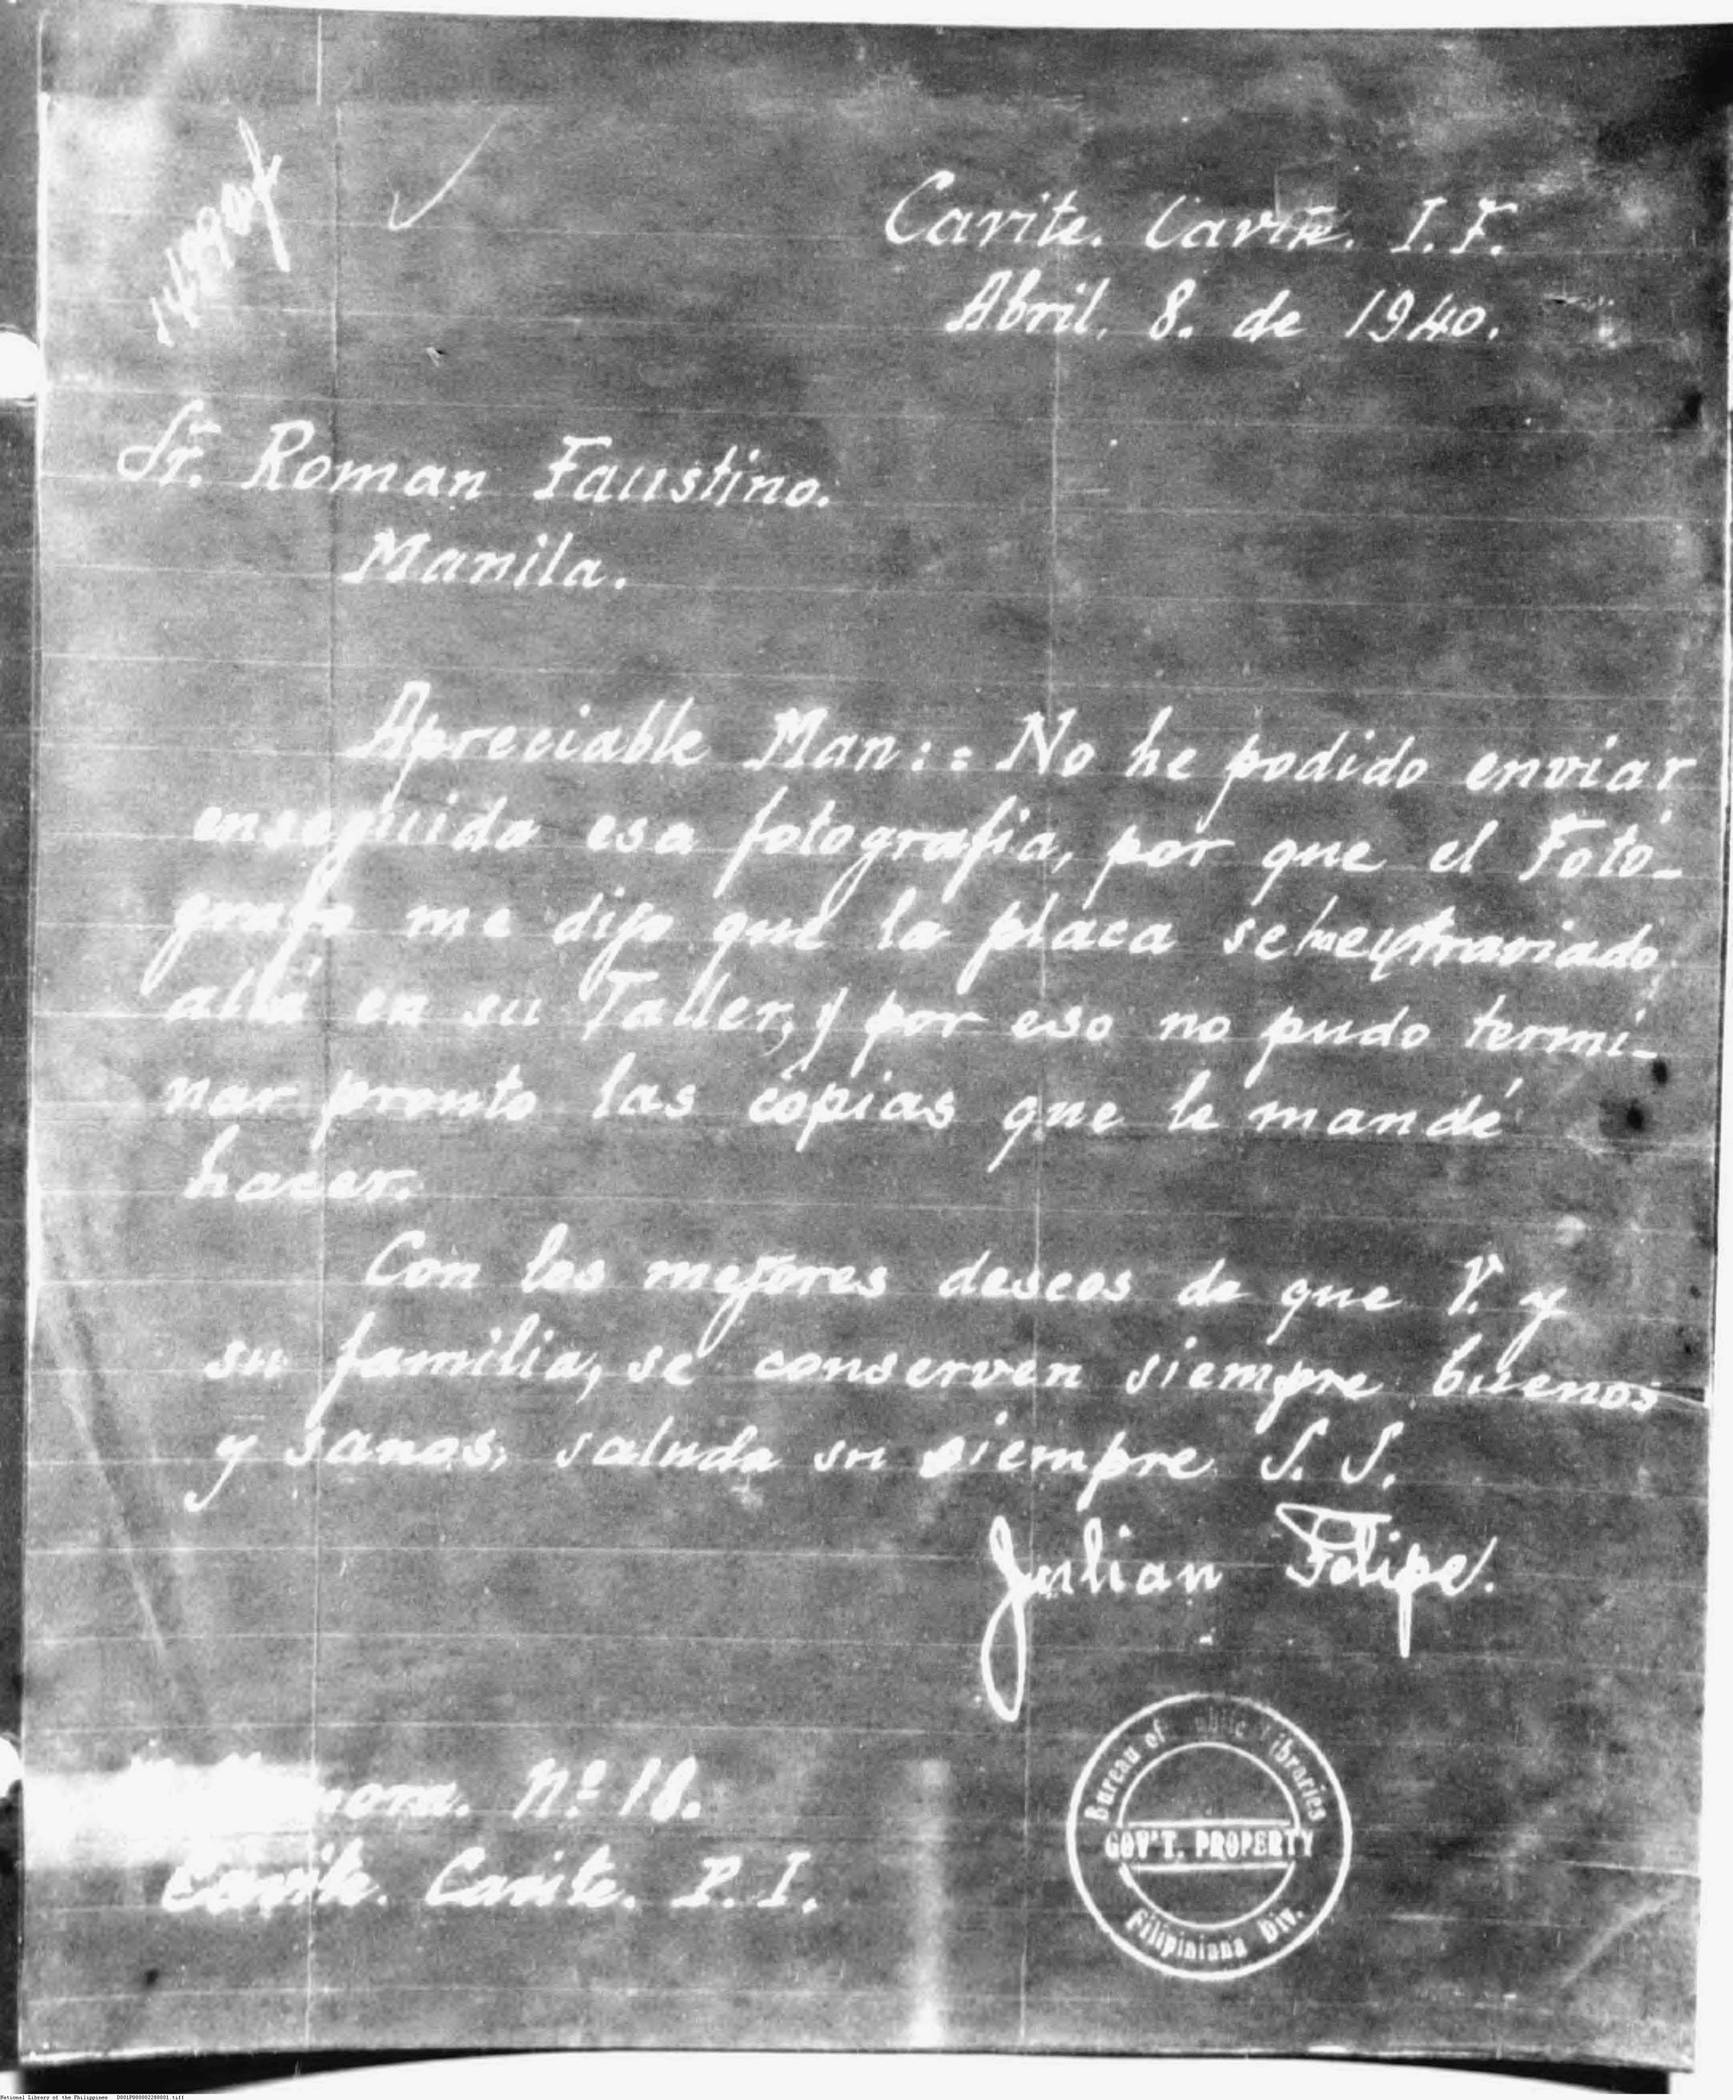 Cavite. Cavite. I. F.
Abril. 8. de 1940.
Sr. Roman Faustino.
Manila.
Apreciable Man:= No he podido enviar
enseguida esa fotografia, por que el Fotó-
grafo me dijo que la placa se ha extraviado,
allá en su Taller, y por eso no pudo termi-
nar pronto las copias que le mandé
hacer.
Con los mejores deseos de que V. y
su familia, se conserven siempre buenos
y sanos, saluda su siempre S. S.
Julian Felipe.
Nº 18.
Cavite. Cavite. P. I.
Bureau of Public Libraries
GOV'T. PROPERTY
Filipiniana Div.
National Library of the Philippines